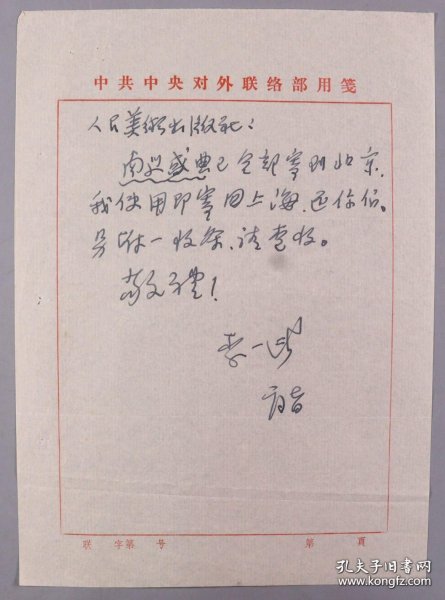 中共中央对外联络部用笺
人民美術出版社：
南巡盛典已全部寄到北京，
我使用即寄回上海，还你们。
另附一收条，请查收。
敬礼！
李一氓
联 字第 号
第 頁
孔夫子旧书网
www.kongfz.com